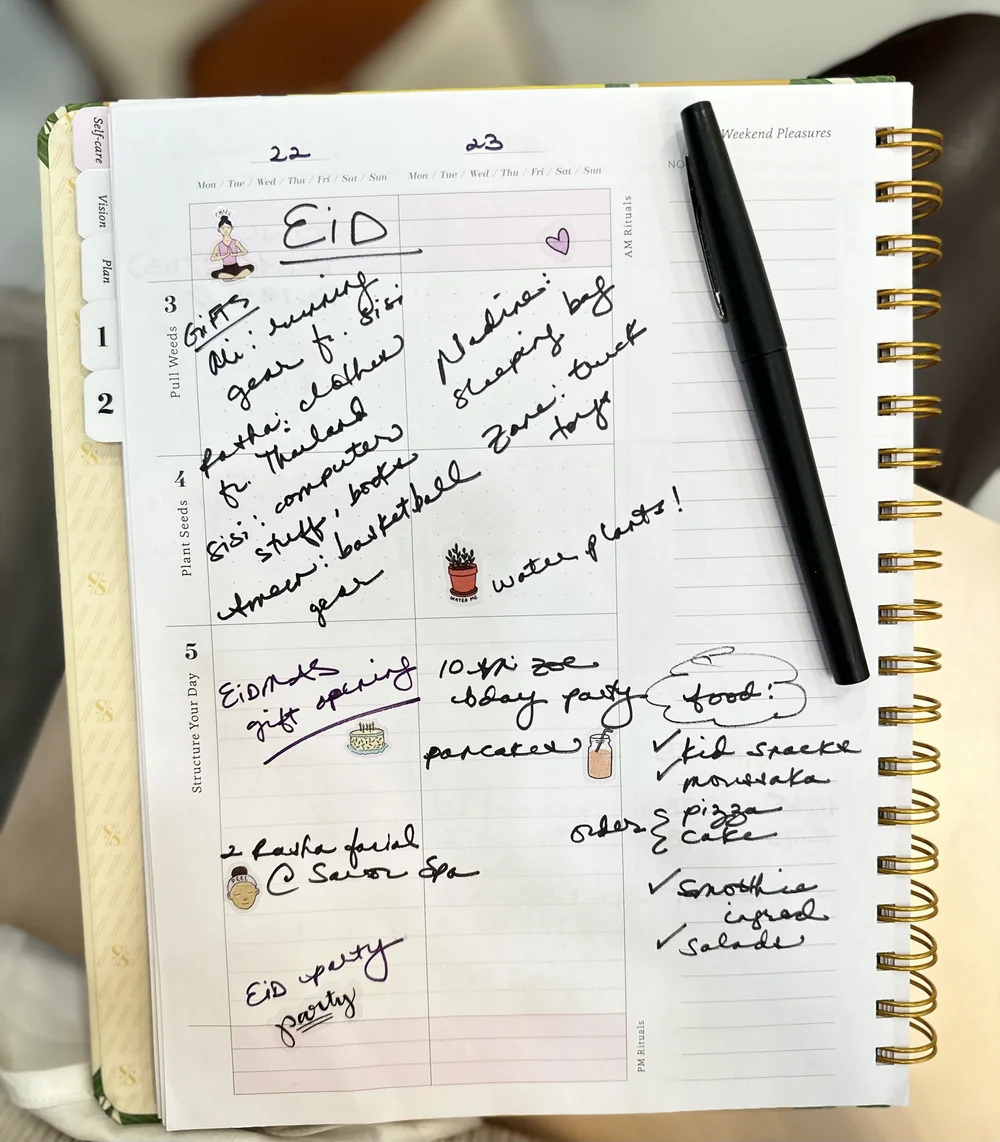 Self-care
Vision
Plan
1
2
Weekend Pleasures
NO
22
23
Mon / Tue / Wed / Thu / Fri / Sat / Sun
Mon / Tue / Wed / Thu / Fri / Sat / Sun
AM Rituals
EiD
3
Pull Weeds
Gifts
Ali: running
gear f. Sisi
Rasha: clothes
fr. Thailand
Sisi: computer
stuff, books
Ameen: basketball
gear
Nadine:
sleeping bag
Zane: truck
toys
4
Plant Seeds
WATER ME
water plants!
5
Structure Your Day
gift opening
10 Zoe
bday party
pancakes
2 Rasha facial
PEEL
@ Savor Spa
EiD party
party
food:
✓ kid snacks
✓ moussaka
order { pizza
cake
✓ Smoothie
ingred
✓ Salads
PM Rituals